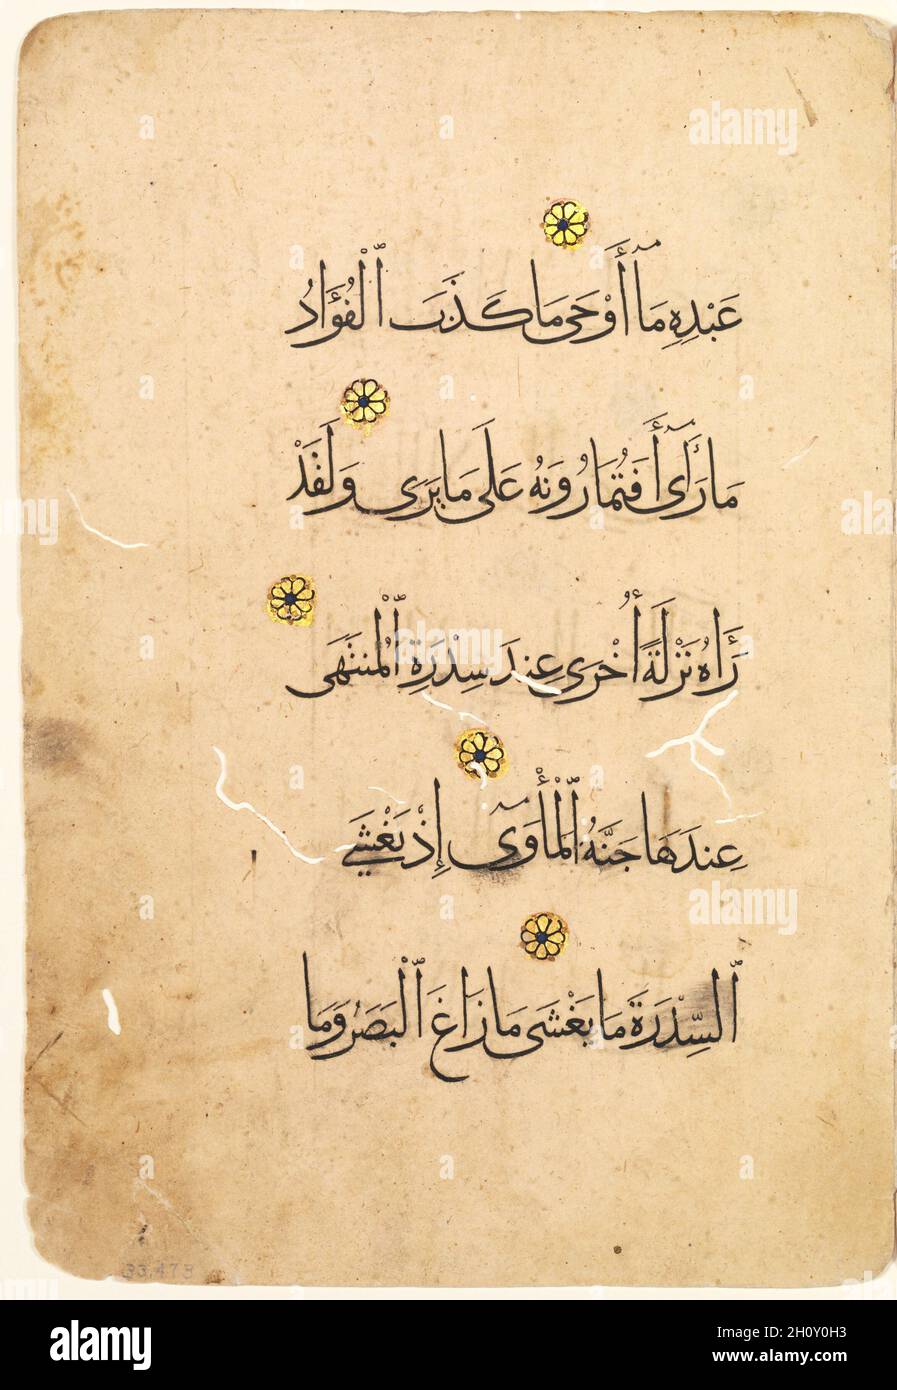 عَبْدِهِ مَآ أَوْحَى مَا كَذَبَ ٱلْفُؤَادُ
مَا رَأَىٓ أَفَتُمَارُونَهُ عَلَى مَا يَرَى وَلَقَدْ
رَءَاهُ نَزْلَةً أُخْرَى عِندَ سِدْرَةِ ٱلْمُنتَهَى
عِندَهَا جَنَّةُ ٱلْمَأْوَىٓ إِذْ يَغْشَى
ٱلسِّدْرَةَ مَا يَغْشَى مَا زَاغَ ٱلْبَصَرُ وَمَا
33.473
alamy
Image ID: 2H0Y0H3
www.alamy.com